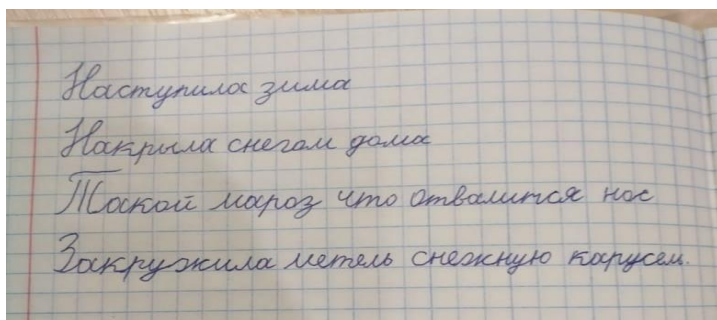 Наступила зима
Накрыла снегом дома
Такой мароз что отвалится нос
Закружила метель снежную карусел.